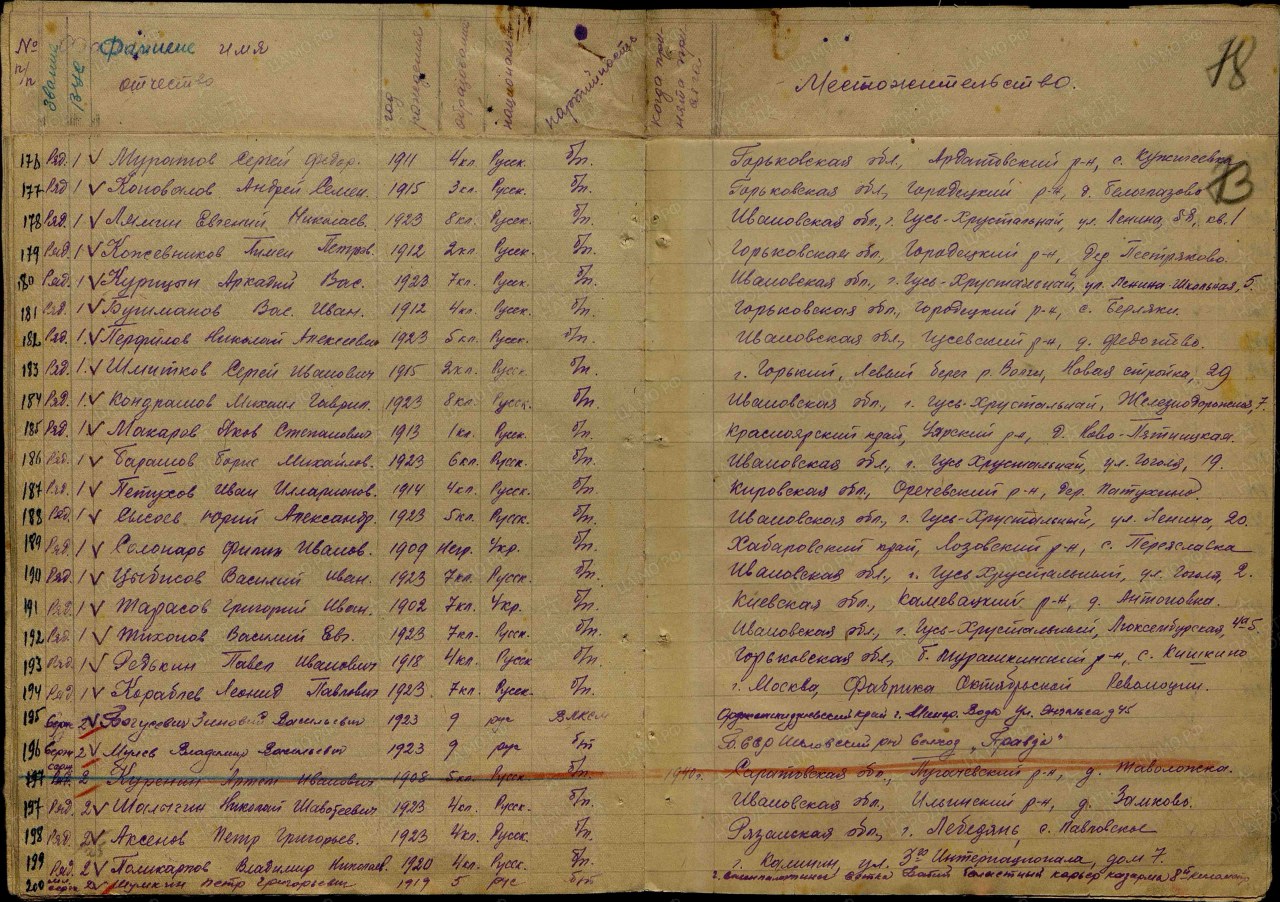 № п/п Звание ВУС Фамилие имя отчество год рождения образование национальн партийность когда принята присяга Местожительство. 18
176 Ряд. 1 Муратов Сергей Федор. 1911 4 кл. Русск. б/п. Горьковская обл., Ардатовский р-н, с.
177 Ряд 1 Коновалов Андрей Семен. 1915 3 кл. Русск. б/п. Горьковская обл, Городецкий р-н, д. Белоглазово 73
178 Ряд. 1 Лямин Евгений Николаев. 1923 8 кл. Русск. б/п. Ивановская обл., г. Гусь-Хрустальный, ул. Ленина, 58, кв. 1
179 Ряд. 1 Кожевников Пимен Петров. 1912 2 кл. Русск. б/п. Горьковская обл., Городецкий р-н, Дер Пестряково.
180 Ряд. 1 Курицын Аркадий Вас. 1923 7 кл. Русск. б/п. Ивановская обл., г. Гусь-Хрустальный, ул. Ленина-Школьная, 5.
181 Ряд. 1 Бушманов Вас. Иван. 1912 4 кл. Русск. б/п. Горьковская обл., Городецкий р-н, с.
182 Ряд. 1 Перфилов Николай Алексеевич 1923 5 кл. Русск. б/п. Ивановская обл., Гусевский р-н, д. Федотово.
183 Ряд 1. Шмитков Сергей Иванович 1915 2 кл. Русск. б/п. г. Горький, Левый берег р. Волги, Новая стройка, 29
184 Ряд. 1. Кондрашов Михаил Гаврил. 1923 8 кл. Русск. б/п. Ивановская обл., г. Гусь-Хрустальный, Железнодорожная, 7.
185 Ряд. 1. Макаров Яков Степанович 1913 1 кл. Русск. б/п. Красноярский край, Уярский р-н, д. Ново-Пятницкая.
186 Ряд. 1 Барашов Борис Михайлов. 1923 6 кл. Русск. б/п. Ивановская обл., г. Гусь Хрустальный, ул. Гоголя, 19.
187 Ряд. 1 Петухов Иван Илларионов. 1914 4 кл. Русск. б/п. Кировская обл., Оричевский р-н, Дер.
188 Ряд. 1 Сысоев Юрий Александр. 1923 5 кл. Русск. б/п. Ивановская обл., г. Гусь-Хрустальный, ул. Ленина, 20.
189 Ряд. 1 Солонарь Филип Иванов. 1909 Негр. Укр. б/п. Хабаровский край, Лозовский р-н, с. Переяславка
190 Ряд 1 Цыбисов Василий Иван. 1923 7 кл. Русск. б/п. Ивановская обл., г. Гусь Хрустальный, ул. Гоголя, 2.
191 Ряд. 1 Тарасов Григорий Иван. 1902 7 кл. Укр. б/п. Киевская обл., р-н, д. Антоновка.
192 Ряд. 1 Тихонов Василий Евг. 1923 7 кл. Русск. б/п. Ивановская обл., г. Гусь-Хрустальный, Люксембургская, 5.
193 Ряд. 1 Редькин Павел Иванович 1918 4 кл. Русск б/п. Горьковская обл., Б. Мурашкинский р-н, с. Кишкино
194 Ряд 1 Кораблев Леонид Павлович 1923. 7 кл. Русск. б/п. г. Москва, Фабрика Октябрьской Революции.
195 2 Богусевич Зиновий Васильевич 1923 9 рус ВЛКСМ Орджоникидзевский край г. Минер. Воды ул. Энгельса д 45
196 2 Мулев Владимир Васильевич 1923 9 рус б/п БССР р-н колхоз „Правда"
197 2 Куренин Артем Иванович 1908 5 кл. Русск б/п. 1940 г. Саратовская обл., Пугачевский р-н, д. Таволожка.
197 Ряд 2 Николай 1923 4 кл. Русск. б/п. Ивановская обл., Ильинский р-н, д. Замково.
198 Ряд. 2 Аксенов Петр Григорьев. 1923 4 кл. Русск. б/п. Рязанская обл., г. Лебедянь, с. Павловское
199 Ряд. 2 Поликарпов Владимир Николаев. 1920 4 кл. Русск. б/п. г. Калинин, ул. 3го Интернационала, дом 7.
200 2 Петр Григорьевич 1919 5 рус б/п карьер казарма 8й